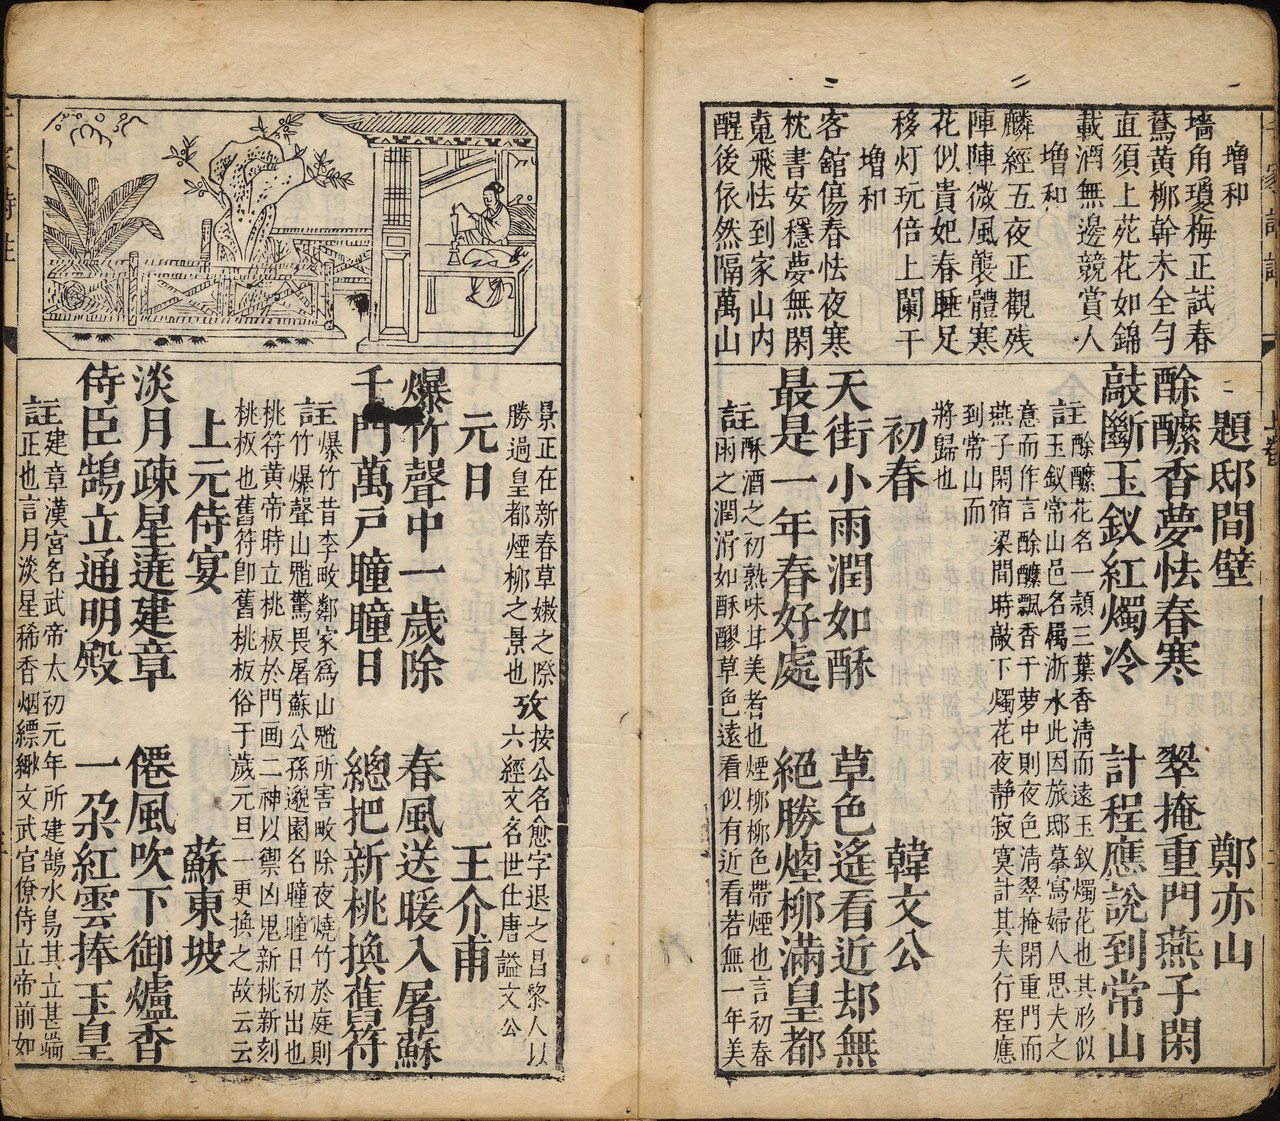 增和
墻角瓊梅正試春
鵞黃柳幹未全勻
直須上苑花如錦
載酒無邊競賞人
增和
麟經五夜正觀残
陣陣微風襲體寒
花似貴妃春睡足
移灯玩倍上闌干
增和
客舘傷春怯夜寒
枕書安穩夢無閑
䰟飛怯到家山内
醒後依然隔萬山
題邸間壁 鄭亦山
酴醿香夢怯春寒 翠掩重門燕子閑
敲斷玉釵紅燭冷 計程應說到常山
註酴醿花名一頴三葉香清而遠玉釵燭花也其形似
玉釵常山邑名属浙水此因旅邸摹寫婦人思夫之
意而作言酴醿飄香于夢中則夜色清翠掩閉重門而
燕子閑宿梁間時敲下燭花夜静寂寞計其夫行程應
到常山而
將歸也
初春 韓文公
天街小雨潤如酥 草色遙看近却無
最是一年春好處 絕勝煙柳滿皇都
註酥酒之初熟味甘美者也煙柳柳色帶煙也言初春
雨之潤滑如酥醪草色遠看似有近看若無一年美
景正在新春草嫩之際攷按公名愈字退之昌黎人以
勝過皇都煙柳之景也六經文名世仕唐謚文公
元日 王介甫
爆竹聲中一歲除 春風送暖入屠蘇
千門萬戶曈曈日 總把新桃換舊符
註爆竹昔李畋鄰家爲山魈所害畋除夜燒竹於庭則
竹爆聲山魈驚畏屠蘇公孫邈園名曈曈日初出也
桃符黄帝時立桃板於門画二神以禦凶鬼新桃新刻
桃板也舊符卽舊桃板俗于歲元旦一更換之故云云
上元侍宴 蘇東坡
淡月疎星遶建章 僊風吹下御爐香
侍臣鵠立通明殿 一朶紅雲捧玉皇
註建章漢宫名武帝太初元年所建鵠水鳥其立甚端
正也言月淡星稀香烟縹緲文武官僚侍立帝前如